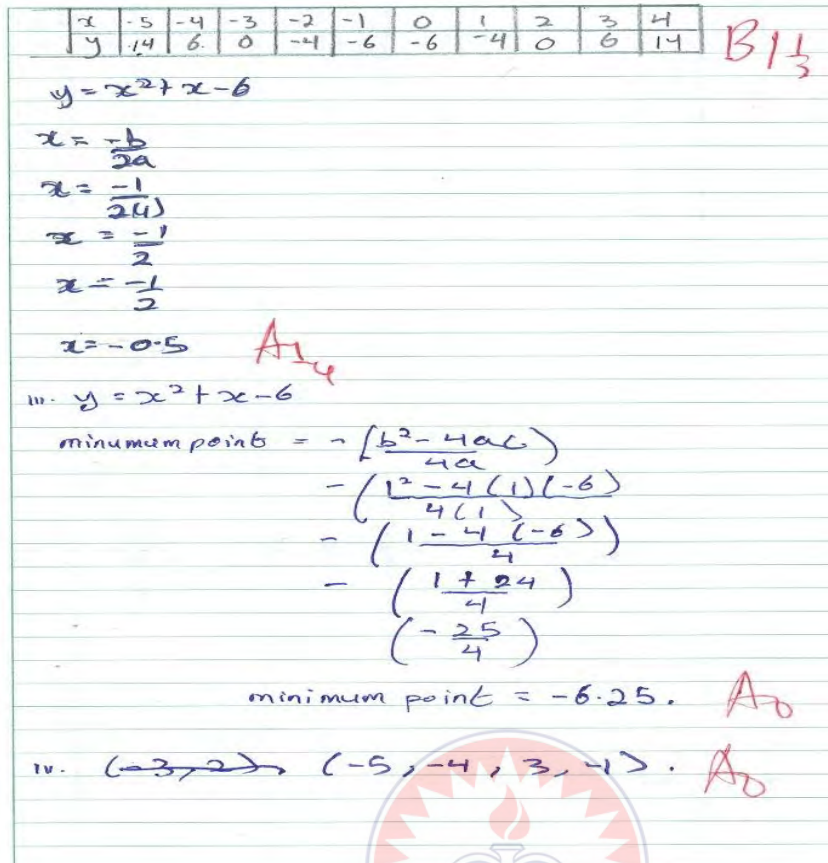 x | -5 | -4 | -3 | -2 | -1 | 0 | 1 | 2 | 3 | 4
y | 14 | 6 | 0 | -4 | -6 | -6 | -4 | 0 | 6 | 14
B1 1/3
y = x² + x - 6
x = -b/2a
x = -1/2(1)
x = -1/2
x = -1/2
x = -0.5 A1-4
iii. y = x² + x - 6
minumum point = - (b² - 4ac / 4a)
- (1² - 4(1)(-6) / 4(1))
- (1 - 4(-6) / 4)
- (1 + 24 / 4)
(-25/4)
minimum point = -6.25. A0
iv. (-3, 2), (-5, -4, 3, -1). A0